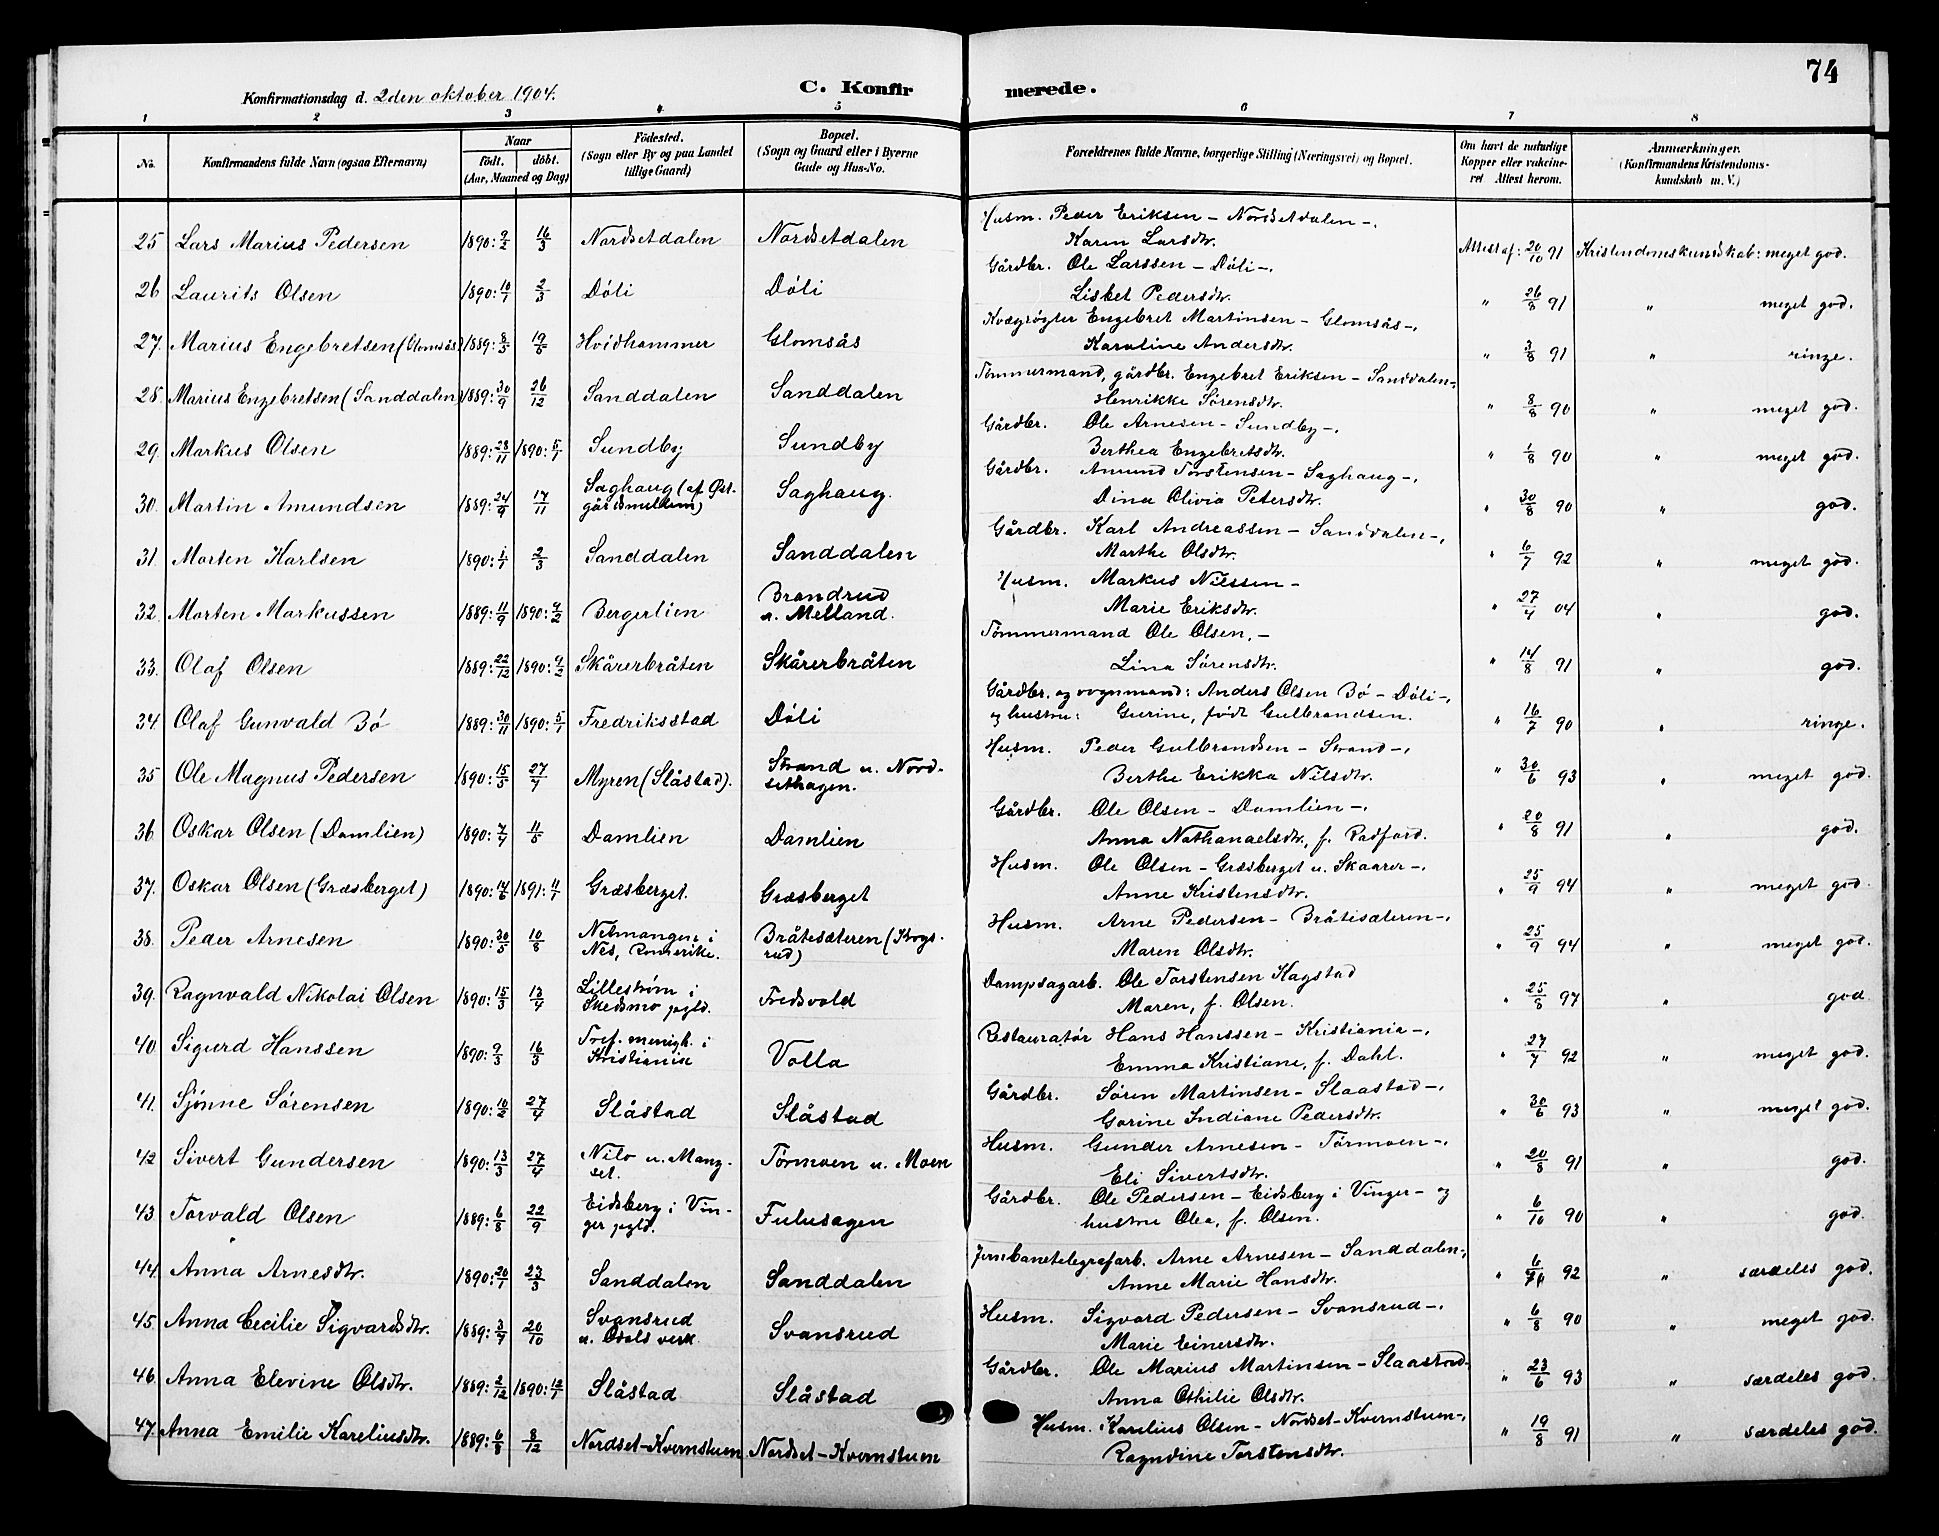 74
Konfirmationsdag d. 2den oktober 1904.
C. Konfirmerede.
1 2 3 4 5 6 7 8
No. | Konfirmandens fulde Navn (ogsaa Efternavn) | Naar født. døbt. (Aar, Maaned og Dag) | Fødested. (Sogn eller By og paa Landet tillige Gaard) | Bopæl. (Sogn og Gaard eller i Byerne Gade og Hus-No. | Forældrenes fulde Navne, borgerlige Stilling (Næringsvei) og Bopæl. | Om havt de naturlige Kopper eller vakcineret Attest herom. | Anmærkninger. (Konfirmandens Kristendomskundskab m. V.)
25 Lars Marius Pedersen 1890: 9/2 16/3 Nordsetdalen Nordsetdalen Husm. Peder Eriksen – Nordsetdalen –, Karen Larsdtr. Attest af: 20/10 91 Kristendomskundskab: meget god.
26 Laurits Olsen 1890: 10/1 2/3 Döli Döli Gårdbr. Ole Larssen – Döli –, Lisbet Pedersdtr. " 26/8 91 " meget god.
27. Marius Engebretsen (Glomsås) 1889: 8/5 19/5 Hvidhammer Glomsås Kvægrøgter Engebret Martinsen – Glomsås –, Karoline Andersdtr. " 3/8 91 " ringe.
28. Marius Engebretsen (Sanddalen) 1889: 30/9 26/12 Sanddalen Sanddalen Tømmermand, gårdbr. Engebret Eriksen – Sanddalen –, Henrikke Sørensdtr. " 8/8 90 " meget god.
29. Markus Olsen 1889: 23/11 1890: 5/1 Sundby Sundby Gårdbr. Ole Arnesen – Sundby –, Berthea Engebretsdtr. " 1/8 90 " meget god.
30. Martin Amundsen 1889: 24/9 17/11 Saghaug (af Østgårdsmellem) Saghaug. Gårdbr. Amund Torstensen – Saghaug –, Dina Olivia Petersdtr. " 30/8 90 " god.
31. Morten Karlsen 1890: 1/1 2/3 Sanddalen Sanddalen Gårdbr. Karl Andreassen – Sanddalen –, Marthe Olsdtr. " 6/7 92 " meget god.
32. Morten Markussen 1889: 11/9 1890: 9/2 Bergerlien Brandrud u. Melland. Husm. Markus Nilssen – Marie Eriksdtr. " 27/4 04 " god.
33. Olaf Olsen 1889: 22/12 1890: 9/2 Skårerbråten Skårerbråten Tømmermand Ole Olsen, – Lina Sörensdtr. " 14/8 91 " god.
34. Olaf Gunvald Bö 1889: 30/11 1890: 5/1 Fredriksstad Döli Gårdbr. og vognmand: Anders Olsen Bö – Döli –, og hustru: Gurine, født Gulbrandsen. " 16/7 90 " ringe.
35 Ole Magnus Pedersen 1890: 15/3 27/4 Myren (Slåstad). Strand u. Nordsethagen. Husm. Peder Gulbrandsen – Strand –, Berthe Erikka Nilsdtr. " 30/6 93 " meget god.
36 Oskar Olsen (Damlien) 1890: 7/4 11/5 Damlien Damlien Gårdbr. Ole Olsen – Damlien –, Anna Nathanaelsdtr, f. Radford. " 20/8 91 " god.
37. Oskar Olsen (Græsberget) 1890: 14/6 1891: 11/1 Græsberget. Græsberget Husm. Ole Olsen – Græsberget u. Skaarer –, Anne Kristensdtr. " 25/9 94 " meget god.
38. Peder Arnesen 1890: 30/5 10/8 i Nes, Romerike. Bråtesæteren Husm. Arne Pedersen – Bråtisæteren –, Maren Olsdtr. " 25/9 94 " meget god.
39. Ragnvald Nikolai Olsen 1890: 15/3 13/4 Lilleström i Skedsmo pgld. Fredsvold Dampsagarb. Ole Torstensen Kagstad Maren, f. Olsen. " 25/8 97 " god
40. Sigurd Hanssen 1890: 9/3 16/3 Tref. menigh. i Kristiania Volla Restauratør Hans Hanssen – Kristiania –, Emma Kristiane, f. Dahl. " 27/7 92 " meget god.
41. Sjønne Sörensen 1890: 10/2 27/4 Slåstad Slåstad Gårdbr. Sören Martinsen – Slaastad –, Gorine Indiane Pedersdtr. " 30/6 93 " meget god.
42 Sivert Gundersen 1890: 13/3 27/4 Nilo u. Mangset. Törmoen u. Moen Husm. Gunder Arnesen – Törmoen –, Eli Sivertsdtr. " 20/8 91 " god.
43. Torvald Olsen 1889: 6/8 22/9 Eidsberg i Vinger pgld. Fulusagen Gårdbr. Ole Pedersen – Eidsberg i Vinger – og hustru Olea, f. Olsen. " 6/10 90 " god.
44. Anna Arnesdtr. 1890: 20/1 23/3 Sanddalen Sanddalen Jernbanetelegrafarb. Arne Arnesen – Sanddalen –, Anne Marie Hansdtr. " 92 " særdeles god.
45. Anna Cecilie Sigvardsdtr. 1889: 3/7 20/10 Svansrud u. Odals verk Svansrud Husm. Sigvard Pedersen – Svansrud –, Marie Einersdtr. " 6/8 90 " meget god.
46. Anna Elevine Olsdtr. 1889: 2/12 1890: 12/1 Slåstad Slåstad Gårdbr. Ole Marius Martinsen – Slaastad – Anna Othilie Olsdtr. " 23/6 93 " særdeles god.
47. Anna Emilie Kareliusdtr. 1889: 6/8 8/12 Nordset-Kvernstuen Nordset-Kvernstuen Husm. Karelius Olsen – Nordset-Kvernstuen –, Ragndine Torstensdtr. " 19/8 91 " særdeles god.